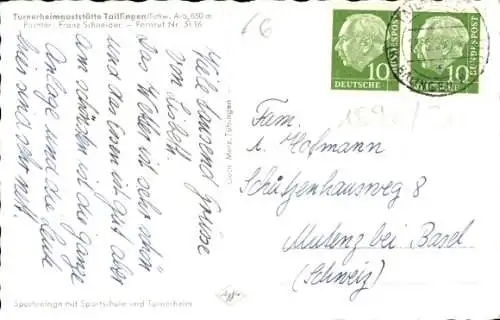 Turnerheimgaststätte Tailfingen/Schw. Alb, 850 m
Pächter: Franz Schneider - Fernruf Nr. 3116
Viele tausend Grüsse
von Lisbeth.
Das Hotel ist sehr schön
und das Essen ist gut aber
am schönsten ist die ganze
Anlage und die Leute
hier sind sehr nett.
Sportanlage mit Sportschule und Turnerheim
Gebr. Metz, Tübingen
Fam.
A. Hofmann
Schützenhausweg 8
Mutenz bei Basel
(Schweiz)
10
DEUTSCHE
BUNDESPOST
10
BUNDESPOST
6